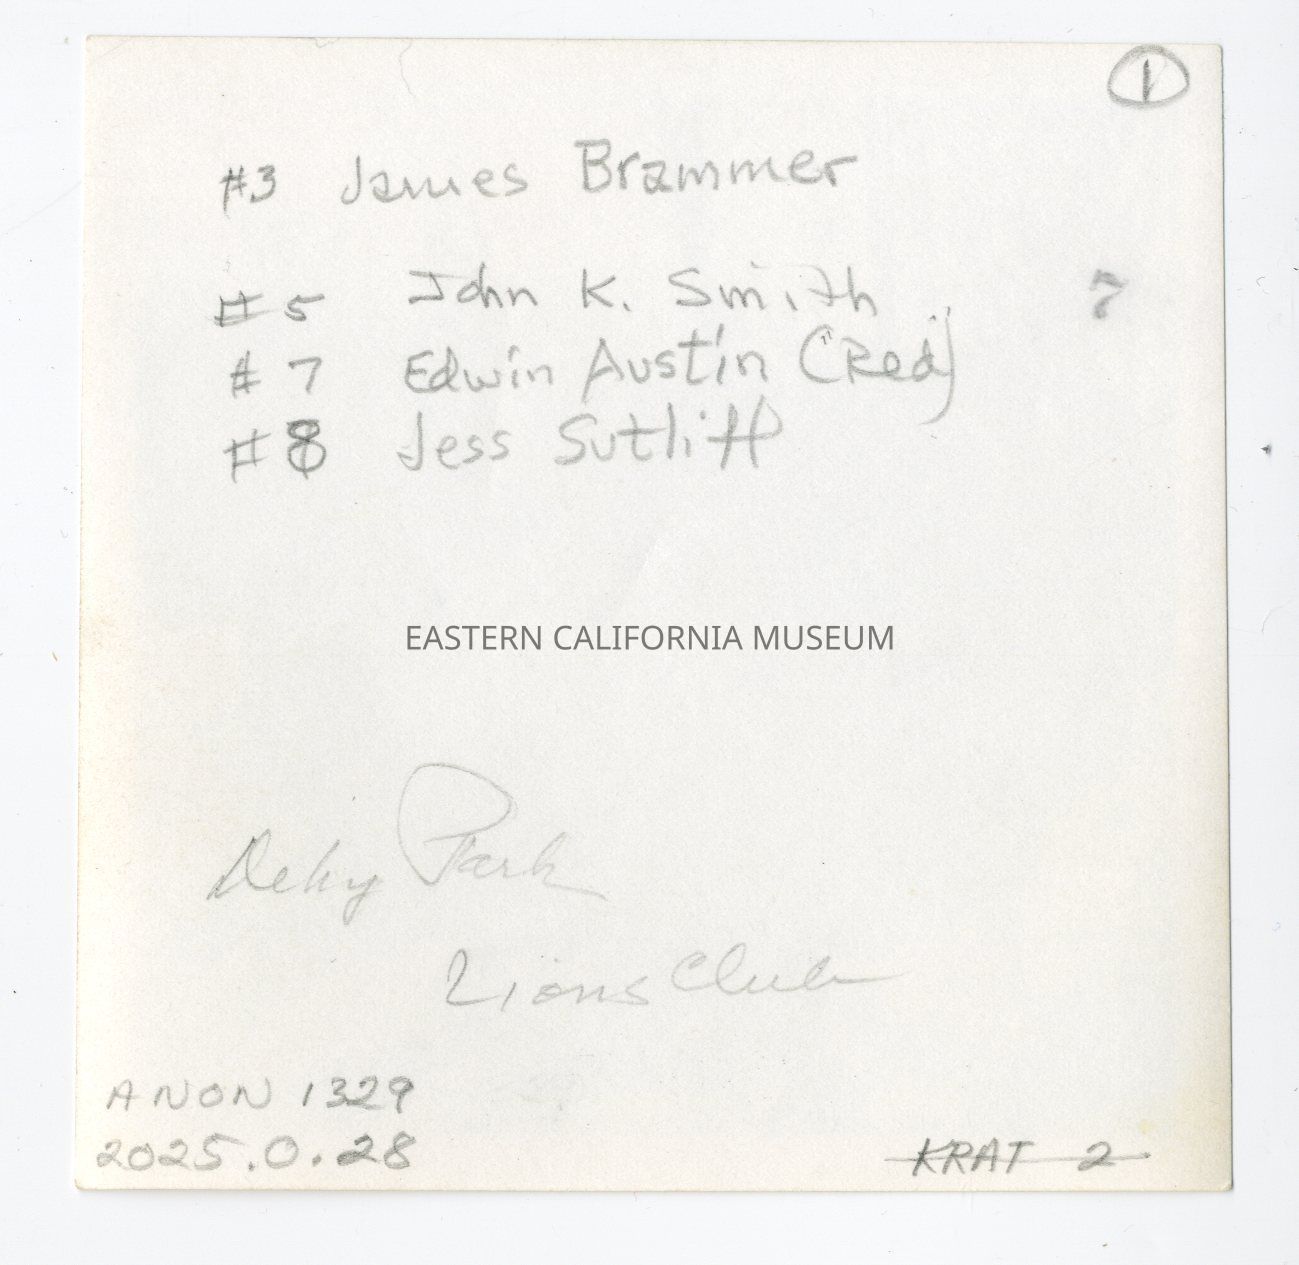 1
#3 James Brammer
#5 John K. Smith
7
#7 Edwin Austin ("Red")
#8 Jess Sutliff
EASTERN CALIFORNIA MUSEUM
Dehy Park
Lions Club
ANON 1329
2025.0.28
KRAT 2